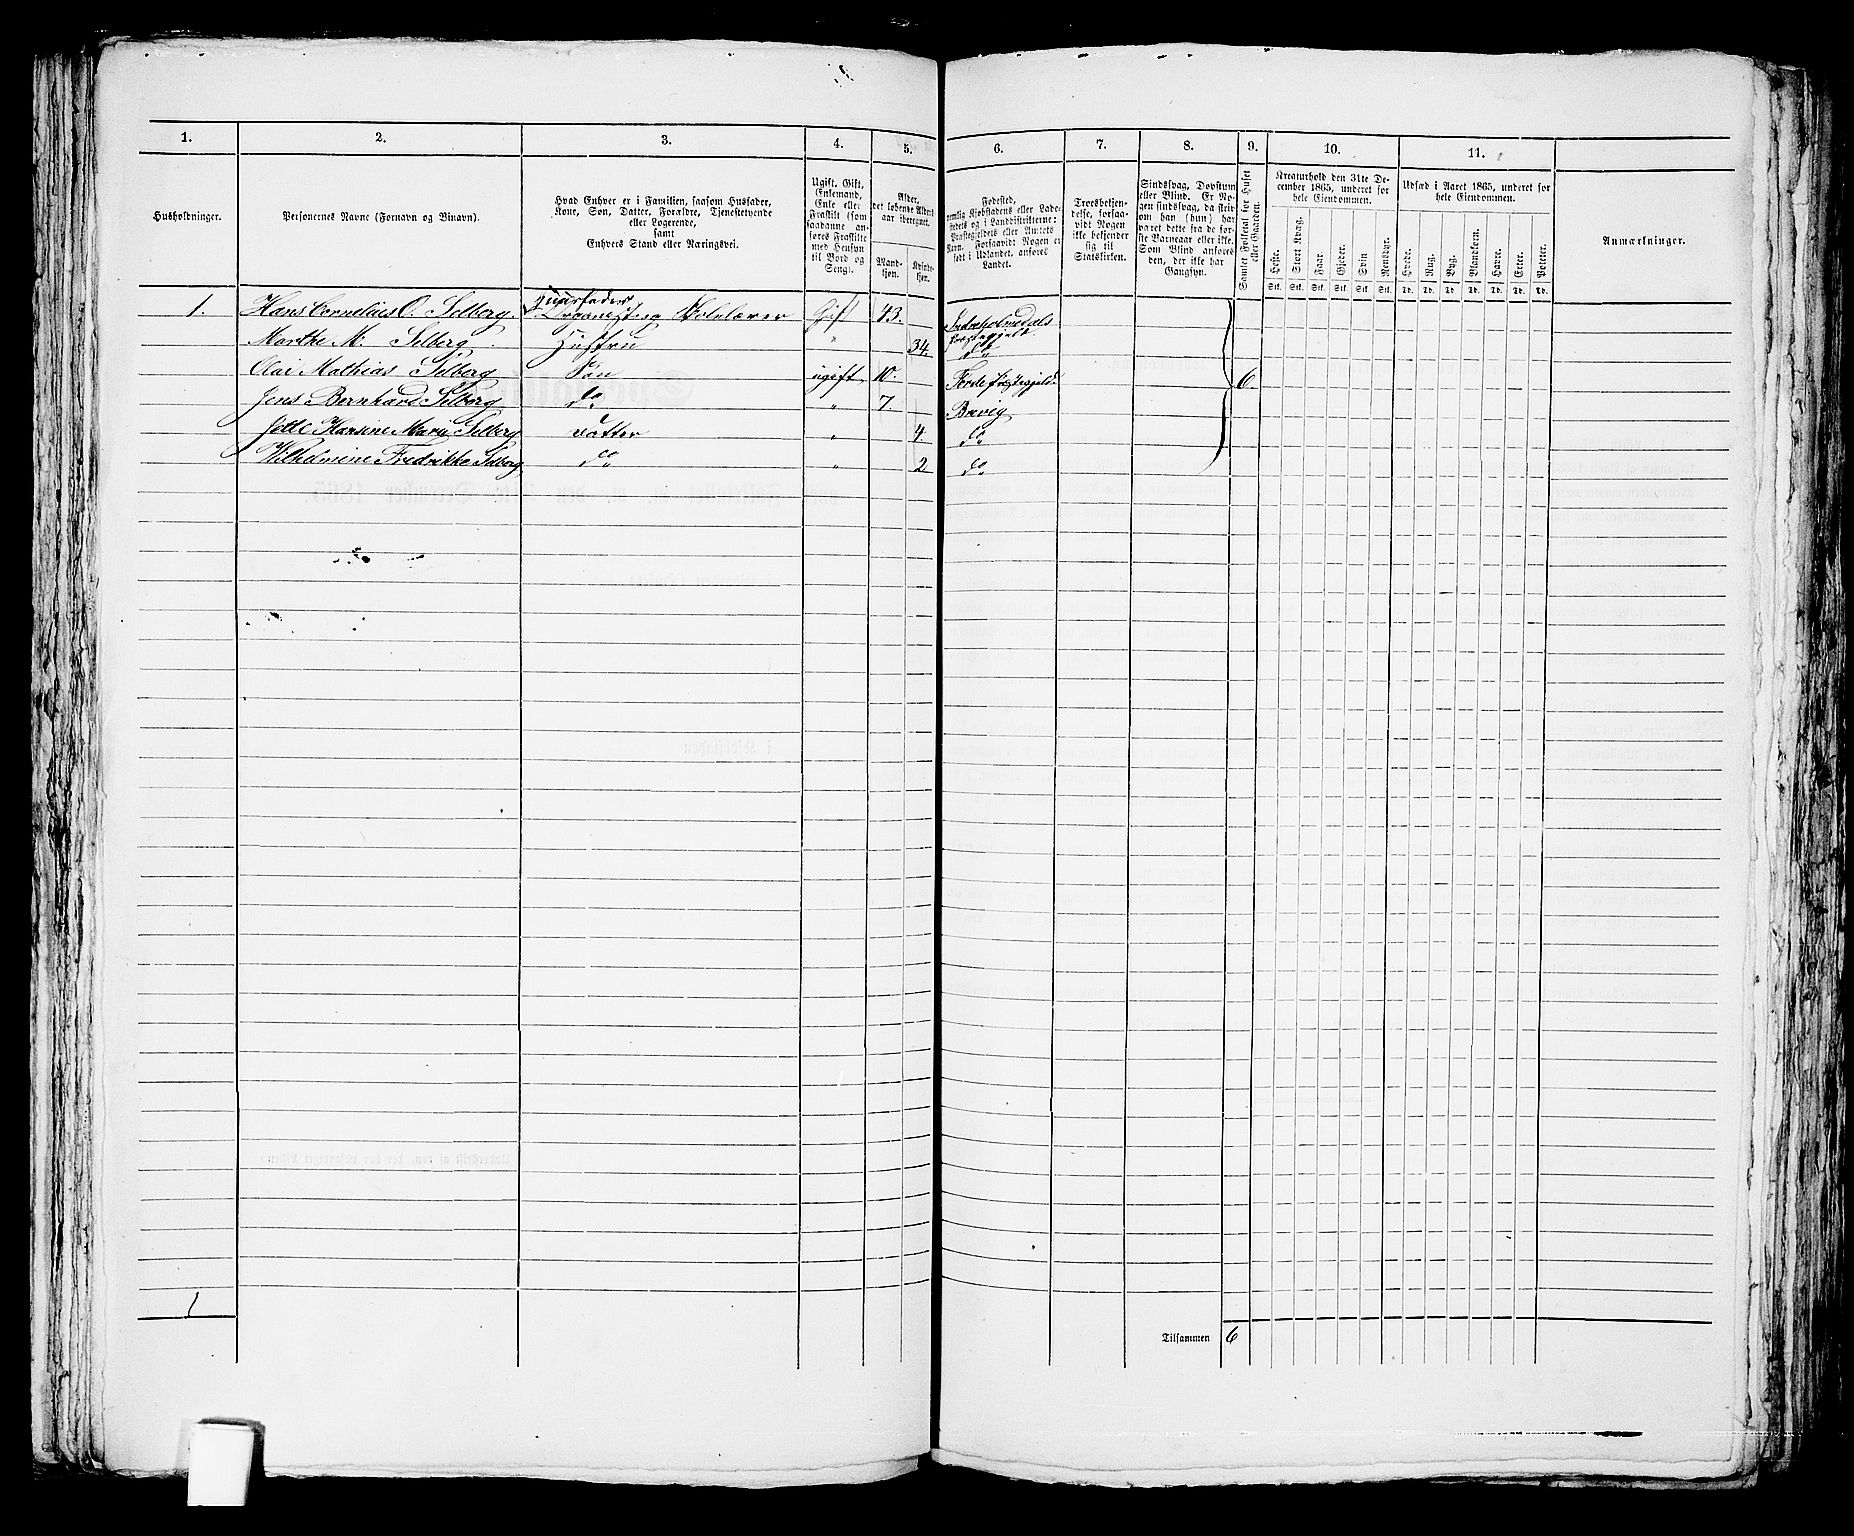 1.
2.
3.
4.
5.
6.
7.
8.
9.
10.
11.
Husholdninger.
Personernes Navne (Fornavn og Binavn).
Hvad Enhver er i Familien, saasom Husfader,
Kone, Søn, Datter, Forældre, Tjenestetyende
eller Logerende,
samt
Enhvers Stand eller Næringsvei.
Ugift, Gift,
Enkemand,
Enke eller
Fraskilt (som
saadanne an-
føres Fraskilte
med Hensyn
til Bord og
Seng).
Alder,
det løbende Alders-
aar iberegnet.
Mand-
kjøn.
Kvinde-
kjøn.
Fødested,
nemlig Kjøbstadens eller Lade-
stedets og i Landdistrikterne:
Præstegjeldets eller Amtets
Navn. Forsaavidt Nogen er
født i Udlandet, anføres
Landet.
Troesbekjen-
delse, forsaa-
vidt Nogen
ikke bekjender
sig til
Statskirken.
Sindssvag, Døvstum
eller Blind. Er No-
gen sindssvag, da skriv
om han (hun) har
været dette fra de før-
ste Barneaar eller ikke.
Som Blind anføres
den, der ikke har
Gangsyn.
Samlet Folketal for Huset
eller Gaarden.
Kreaturhold den 31te De-
cember 1865, underet for
hele Eiendommen.
Heste.
Stort Kvæg.
Faar.
Gjeder.
Svin
Rensdyr.
Stk. Stk. Stk. Stk. Stk. Stk.
Udsæd i Aaret 1865, underet for
hele Eiendommen.
Hvede.
Rug.
Byg.
Blandkorn.
Havre.
Erter.
Poteter.
Td. Td. Td. Td. Td. Td. Td.
Anmærkninger.
Huusfader
1. Hans Cornelius O. Selberg. Organist og Skolelærer Gift 43. Indreholmedals
Præstegjeld
Marthe M. Selberg. Hustru " 34. do
Olai Mathias Selberg Søn ugift 10. Førde Præstegjeld. 6
Jens Bernhard Selberg do " 7. Brevig
Jette Hansine Marie Selberg Datter " 4. do
Wilhelmine Fredrikke Selberg do " 2 do
1
Tilsammen 6